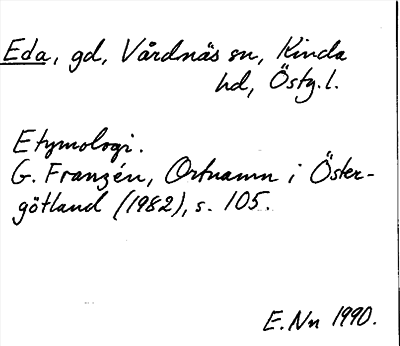 Eda, gd, Vårdnäs sn, Kinda
hd, Östg.l.
Etymologi.
G. Franzén, Ortnamn i Öster-
götland (1982), s. 105.
E. Nn 1990.